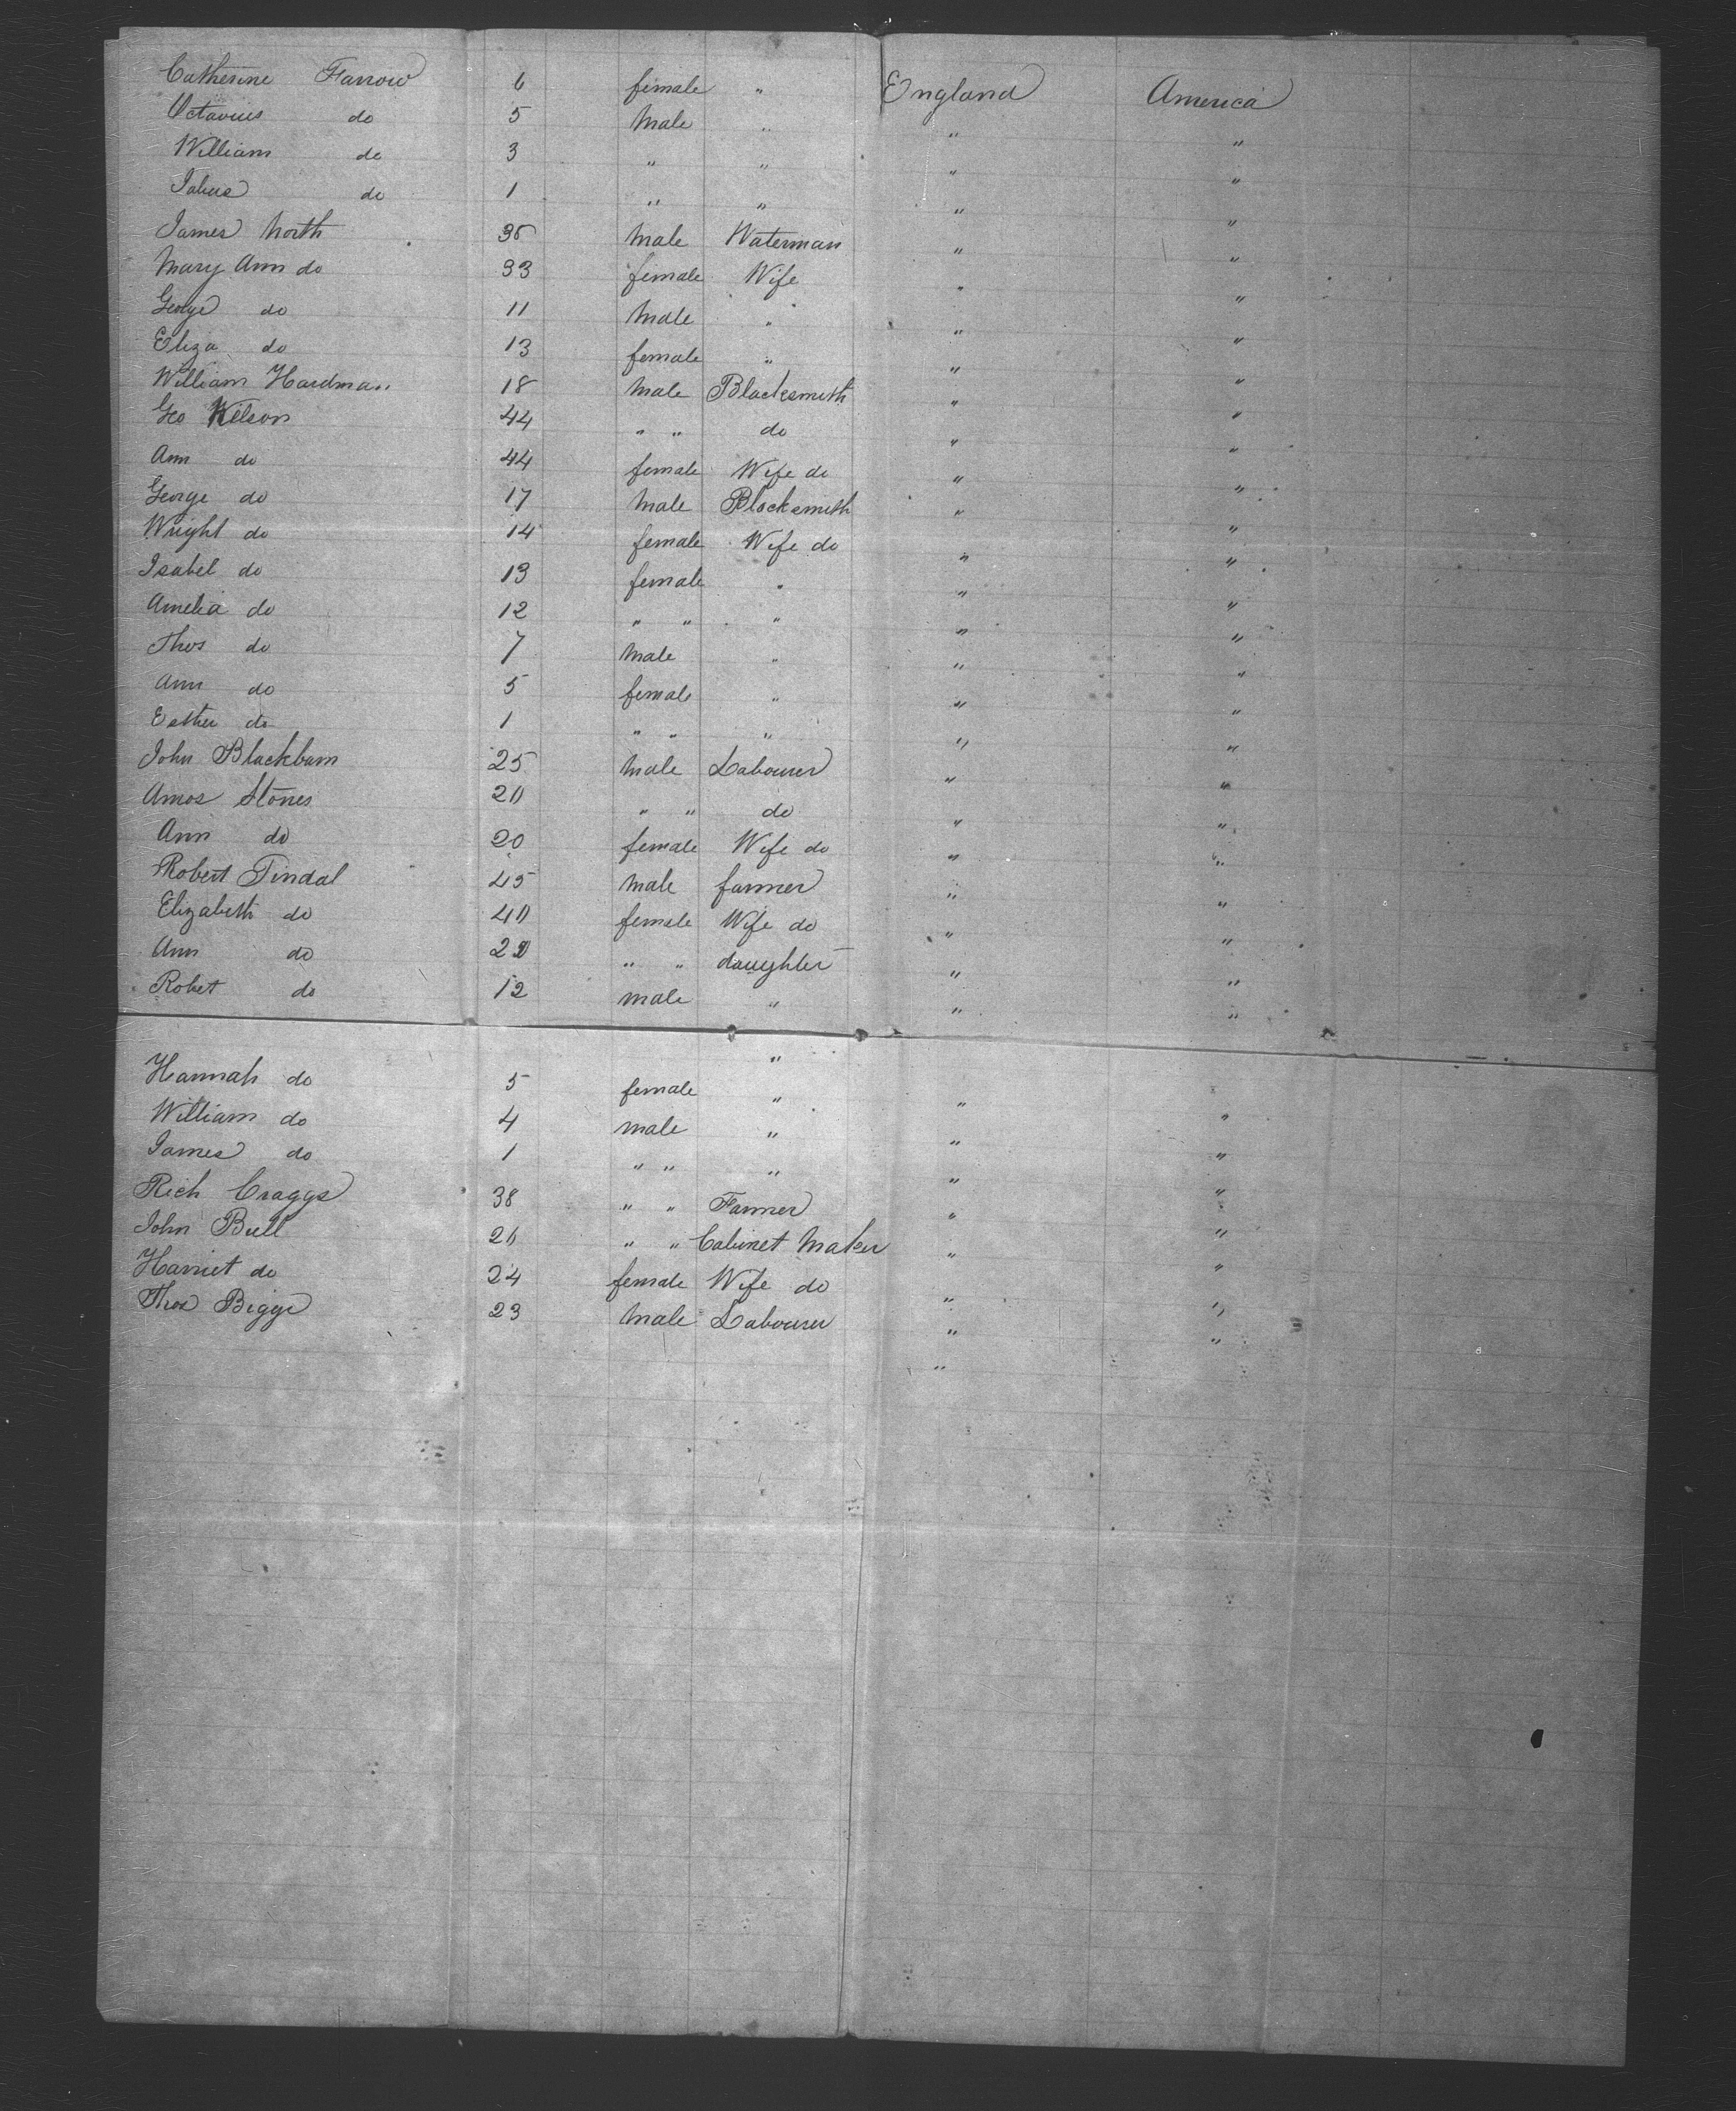 Catherine Farrow 6 female " England America
Octavius do 5 Male " " "
William do 3 " " " "
do 1 " " " "
James North 35 Male Waterman " "
Mary Ann do 33 female Wife " "
George do 11 Male " " "
Eliza do 13 female " " "
William Hardman 18 Male Blacksmith " "
Geo Wilson 44 " " do " "
Ann do 44 female Wife do " "
George do 17 Male Blacksmith " "
Wright do 14 female Wife do " "
Isabel do 13 female " " "
Amelia do 12 " " " " "
Thos do 7 Male " " "
Ann do 5 female " " "
Esther do 1 " " " " "
John Blackburn 25 Male Labourer " "
Amos Stones 20 " " do " "
Ann do 20 female Wife do " "
Robert Tindal 45 Male farmer " "
Elizabeth do 40 female Wife do " "
Ann do " " daughter " "
Robet do 12 male " " "
"
Hannah do 5 female " " "
William do 4 male " " "
James do 1 " " " " "
Rich Craggs 38 " " Farmer " "
John Bull 26 " " Cabinet Maker " "
Harriet do 24 female Wife do " "
Thos Biggs 23 Male Labourer " "
"